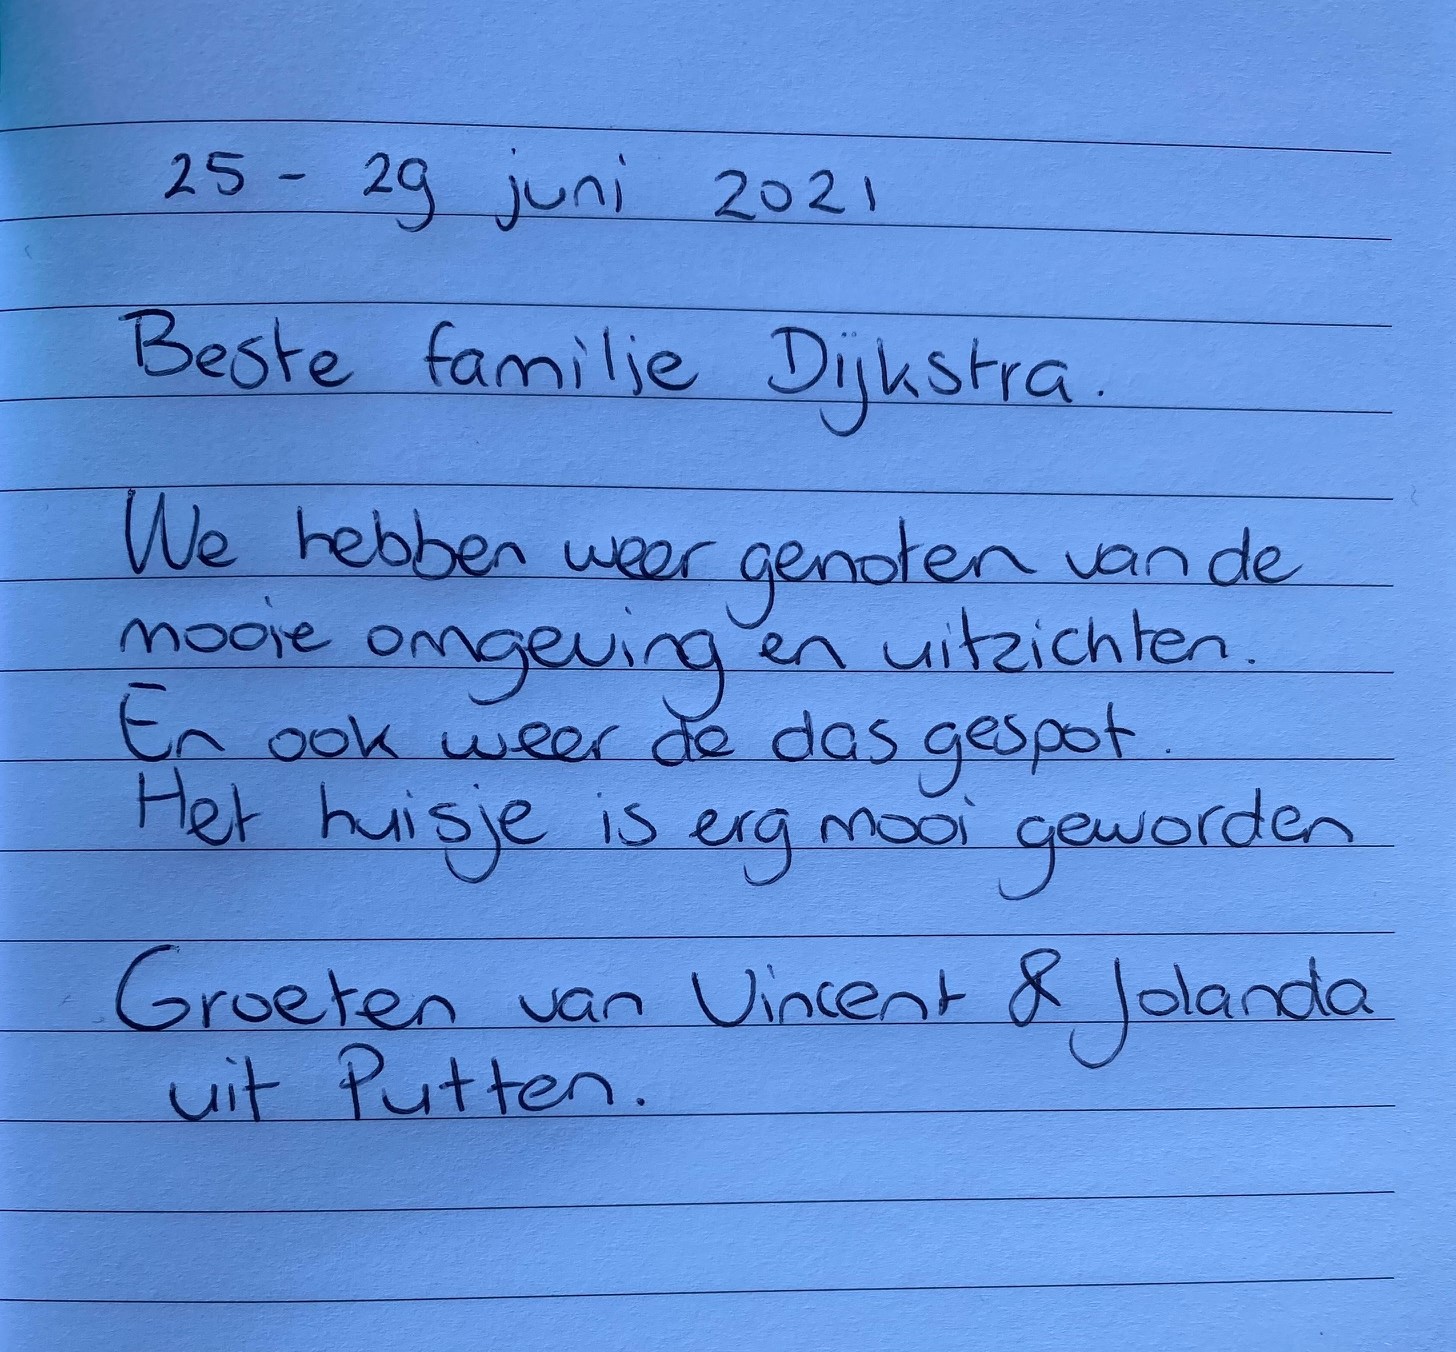 25 - 29 juni 2021
Beste familie Dijkstra.
We hebben weer genoten van de
mooie omgeving en uitzichten.
En ook weer de das gespot.
Het huisje is erg mooi geworden
Groeten van Vincent & Jolanda
uit Putten.